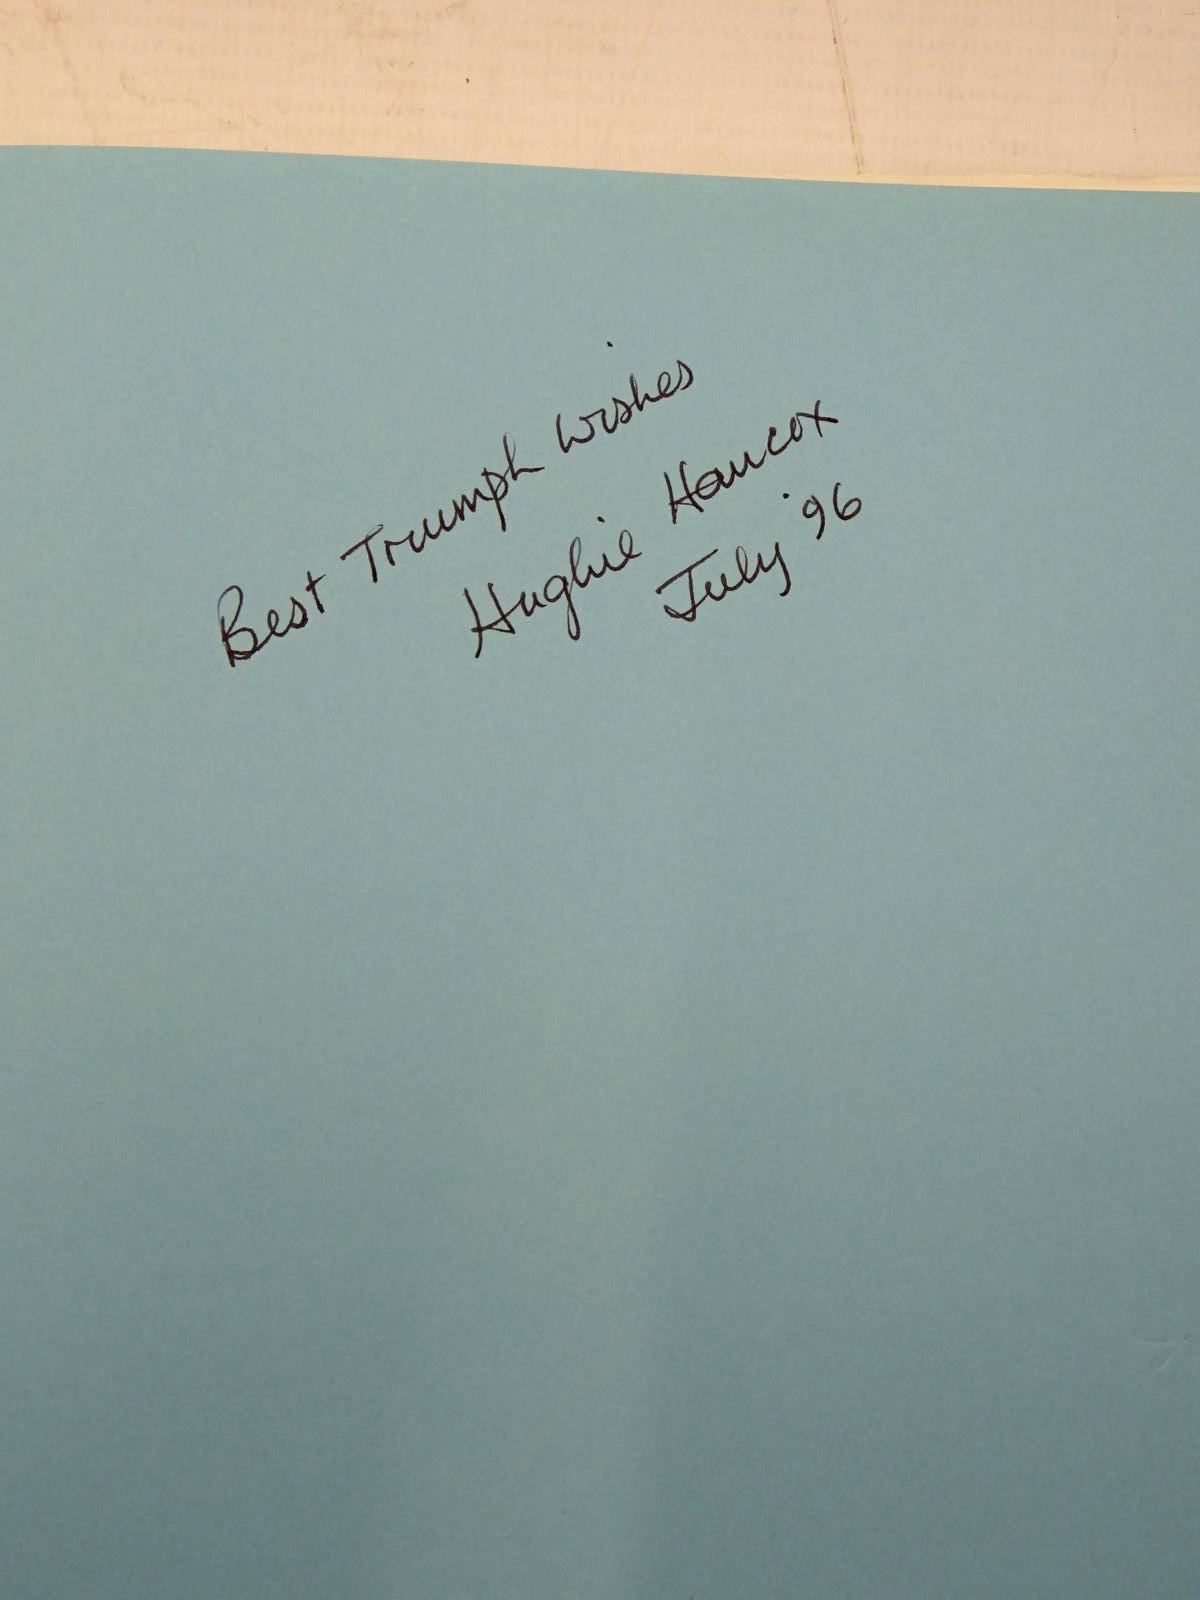 Best Triumph Wishes
Hughie Hancox
July '96